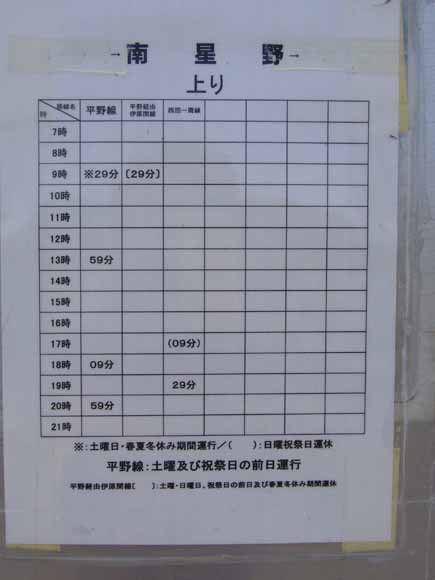 →南 星 野→
上り
路線名 時 平野線 平野経由伊原間線 西回一周線
7時
8時
9時 ※29分 〔29分〕
10時
11時
12時
13時 59分
14時
15時
16時
17時 (09分)
18時 09分
19時 29分
20時 59分
21時
※:土曜日・春夏冬休み期間運行/( ):日曜祝祭日運休
平野線:土曜及び祝祭日の前日運行
平野経由伊原間線〔 〕:土曜・日曜日、祝祭日の前日及び春夏冬休み期間運休